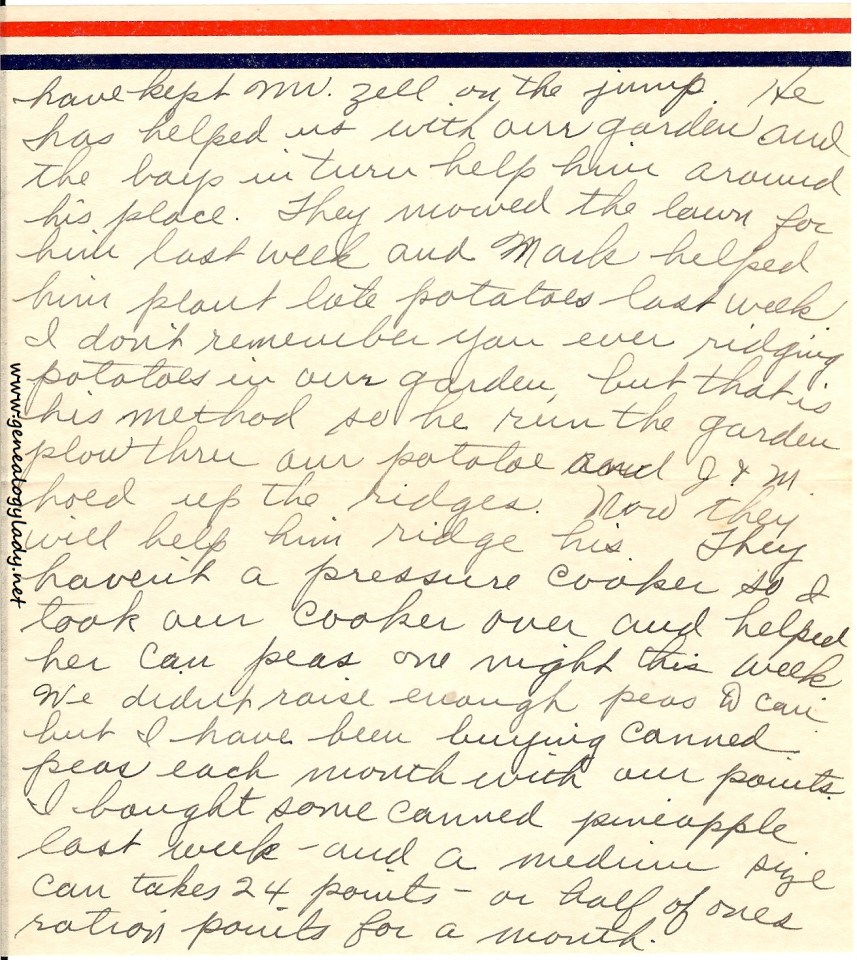 have kept Mr. Zell on the jump. He
has helped us with our garden and
the boys in turn help him around
his place. They mowed the lawn for
him last week and Mark helped
him plant late potatoes last week
I don't remember you ever ridging
potatoes in our garden, but that is
his method so he run the garden
plow thru our potatoe and J & M
hoed up the ridges. Now they
will help him ridge his. They
haven't a pressure cooker so I
took our cooker over and helped
her can peas one night this week
We didn't raise enough peas to can
but I have been buying canned
peas each month with our points.
I bought some canned pineapple
last week - and a medium size
can takes 24 points - or half of ones
ration points for a month.
www.genealogylady.net